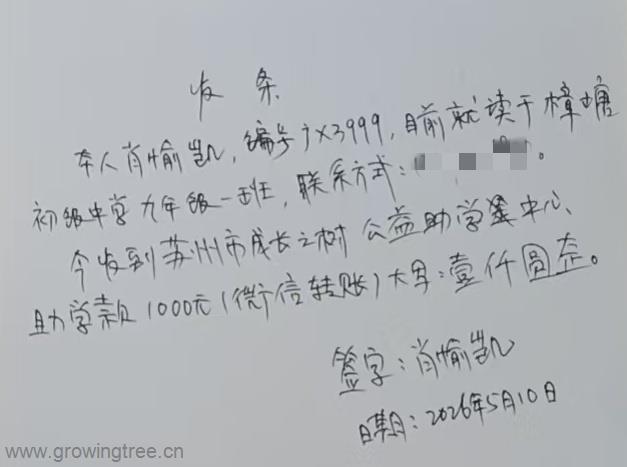 收条
本人肖愉凯,编号jx3999,目前就读于樟塘
初级中学九年级一班,联系方式:。
今收到苏州市成长之树公益助学中心、
助学款1000元(微信转账)大写:壹仟圆整。
签字:肖愉凯
日期:2026年5月10日
www.growingtree.cn